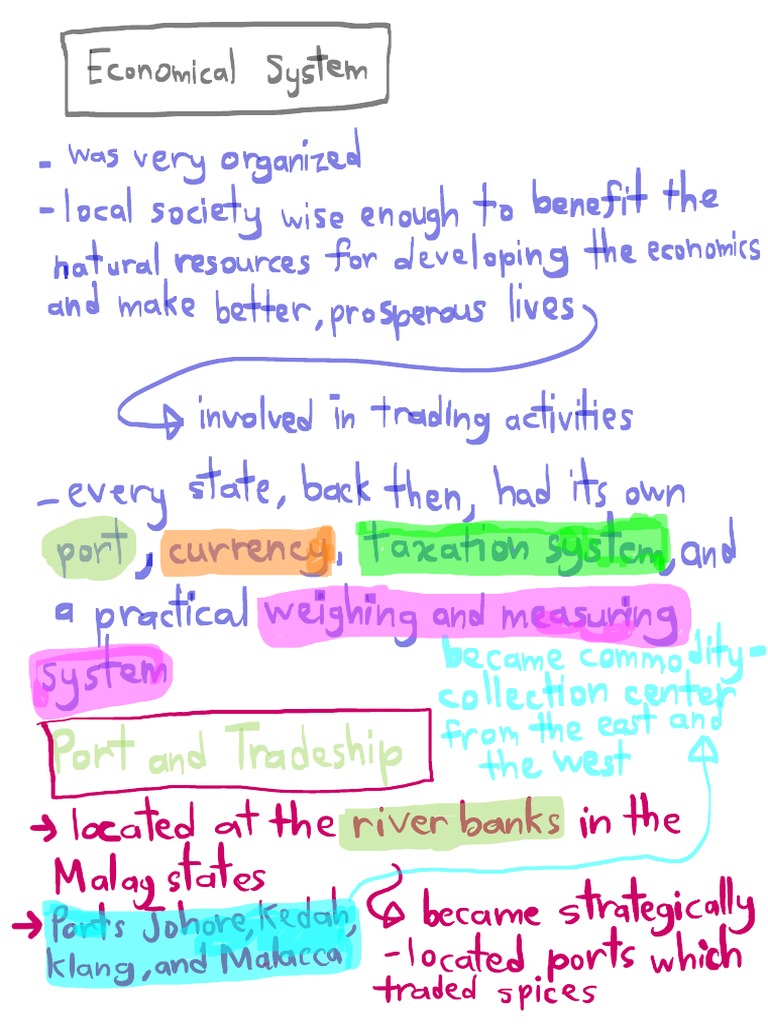 Economical System
- was very organized
- local society wise enough to benefit the
natural resources for developing the economics
and make better, prosperous lives
involved in trading activities
- every state, back then, had its own
port, currency, taxation system, and
a practical weighing and measuring
system
became commodity-
collection center
from the east and
the west
Port and Tradeship
→ located at the river banks in the
Malay states
→ Ports Johore, Kedah,
Klang, and Malacca
became strategically
-located ports which
traded spices